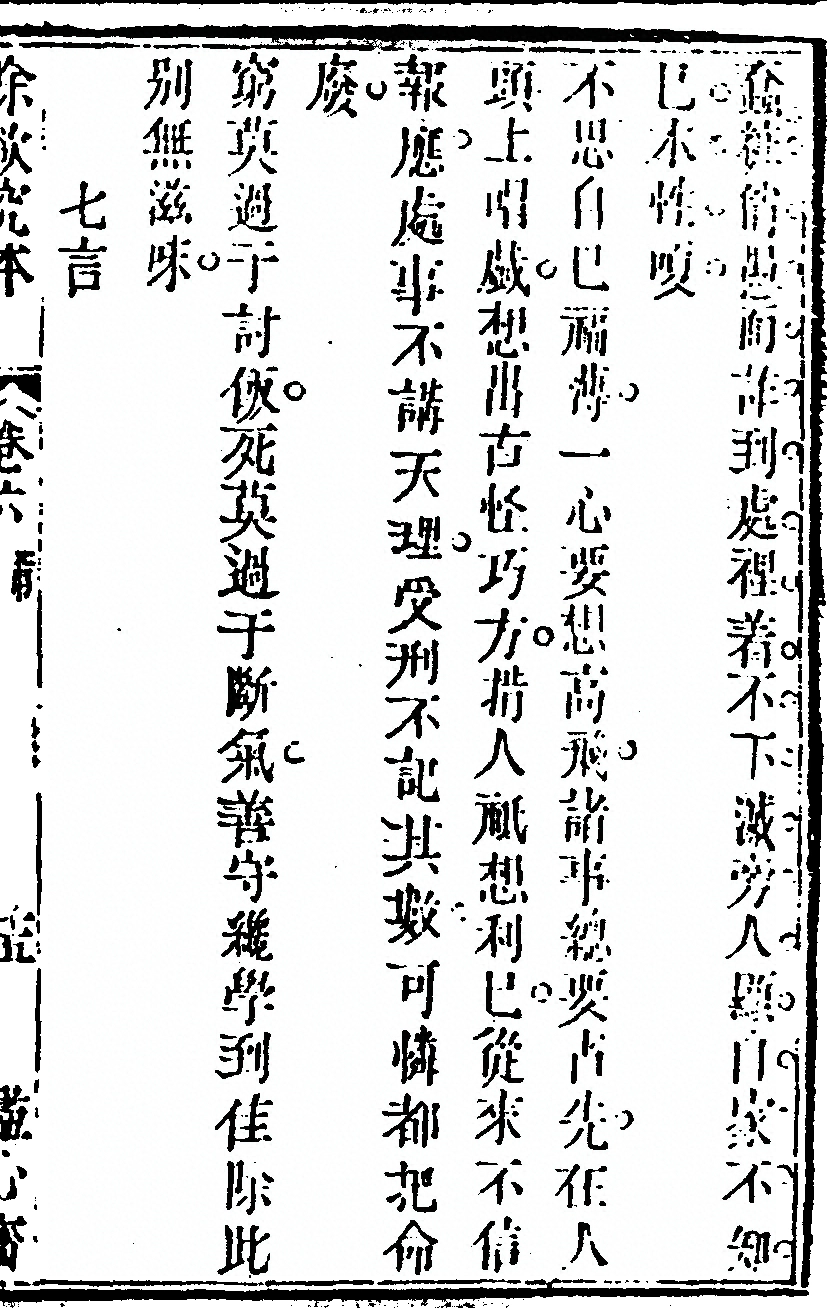 粧俏愚而詐到處裡着不下滅旁人顯自家不知
已本性
不思自已福薄一心要想高飛諸事總要占先在人
頭上唱戲想出古怪巧方揩人祇想利已從來不信
報應處事不講天理受刑不記其數可憐都把命
廢
窮莫過于討飯死莫過于斷氣善守難學到佳除此
别無滋味
七言
除欲究本 卷六